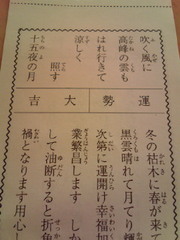 吹く風に
高峰の雲も
はれ行きて
涼しく
照す
十五夜の月
運勢 大吉
冬の枯木に春が来て
黒雲晴れて月てり輝
次第に運開け幸福加
業繁昌します しか
して油断すると折角
禍となります用心し